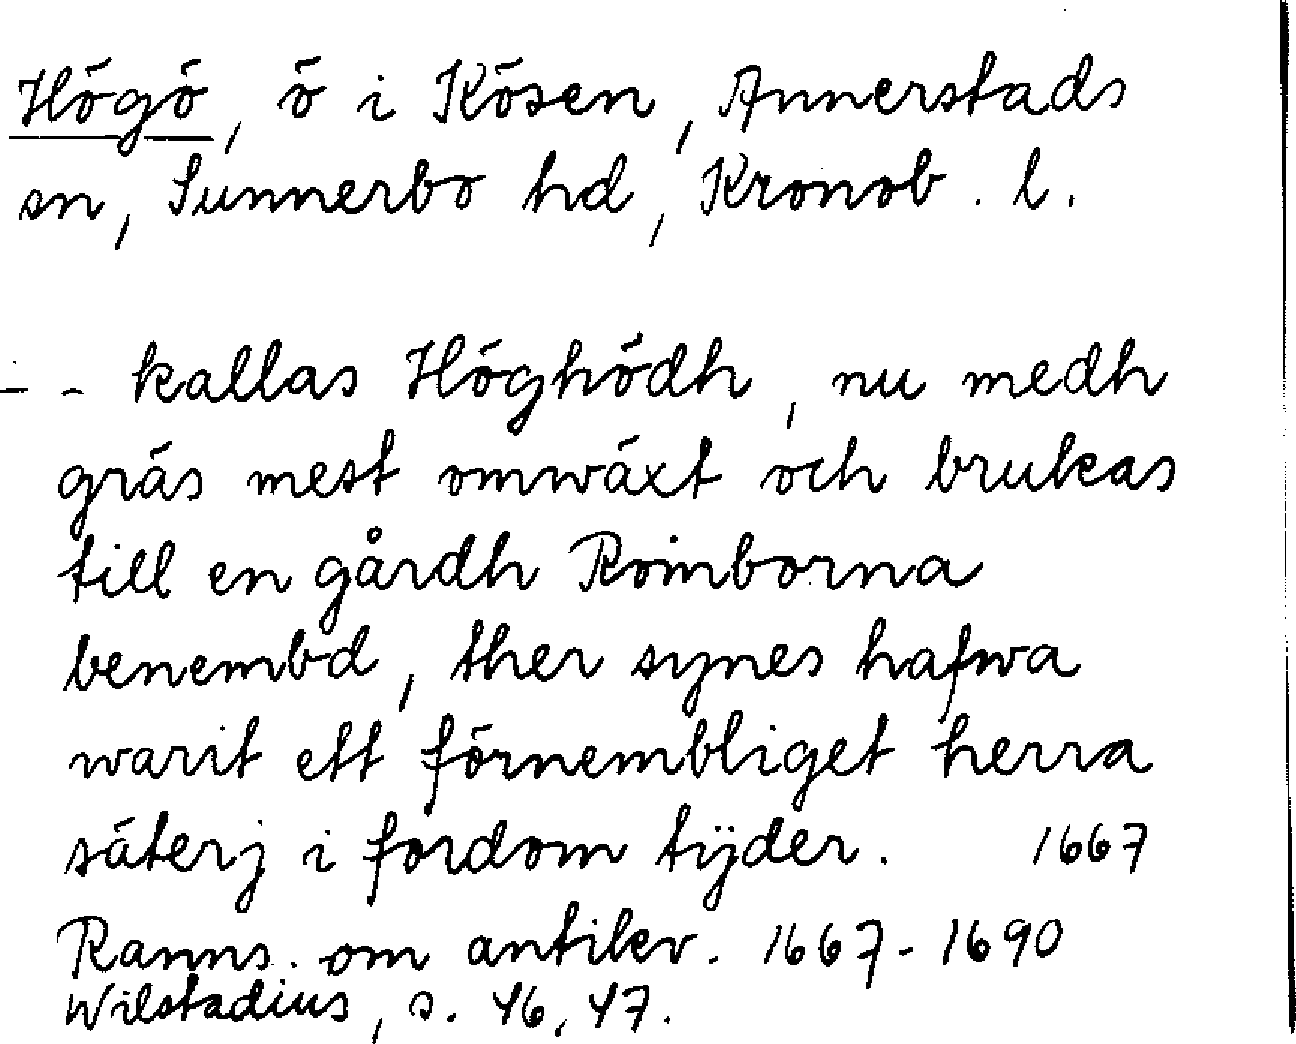 Högö, ö i Kösen, Annerstads
sn, Sunnerbo hd, Kronob. l.
- - kallas Höghödh, nu medh
gräs mest omwäxt och brukas
till en gårdh Romborna
benembd, ther synes hafwa
warit ett förnembliget herra
säterj i fordom tÿder. 1667
Ranns. om antikv. 1667-1690
Wilstadius, s. 46, 47.